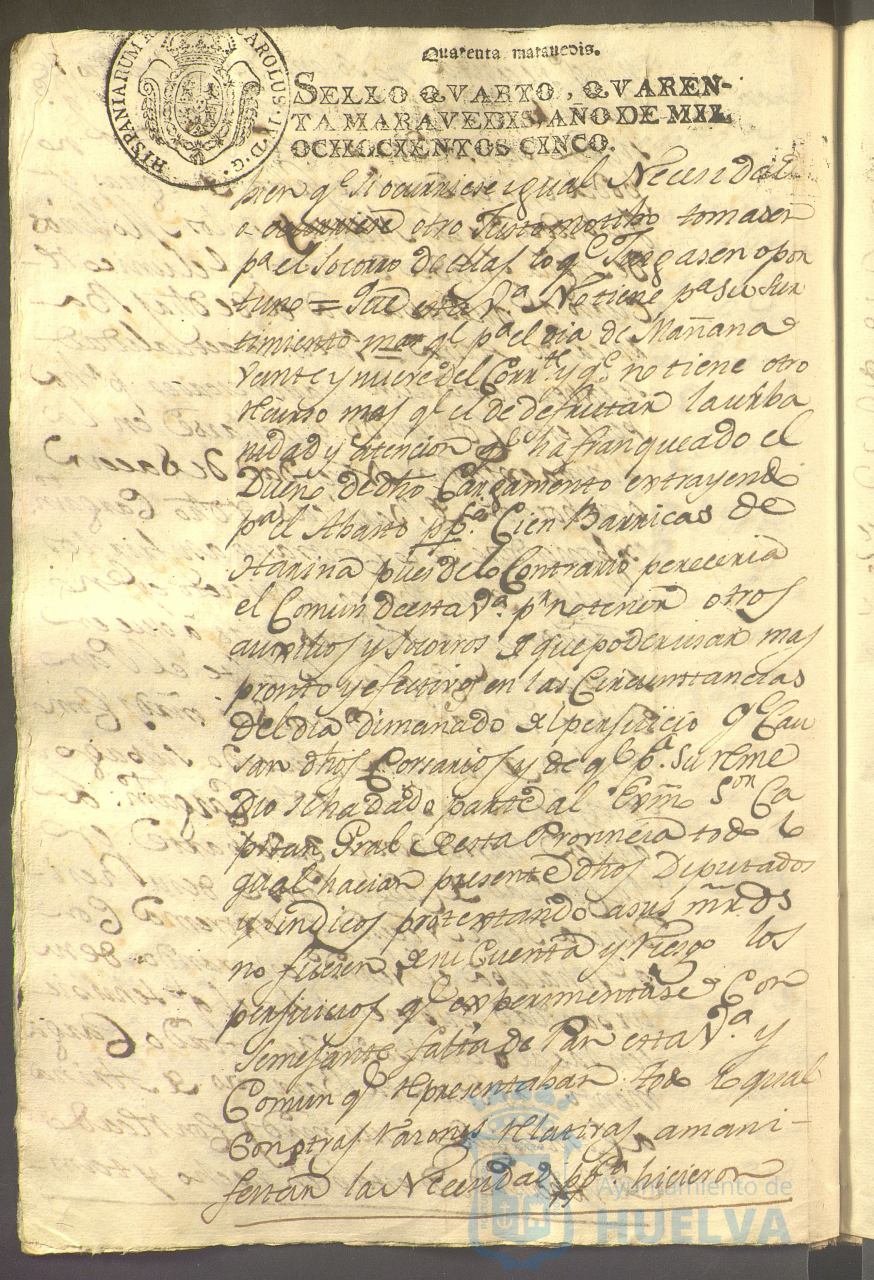 Quarenta maravedis.
HISPANIARUM R CAROLUS · IV · D · G ·
SELLO QVARTO, QVAREN-
TA MARAVEDIS, AÑO DE MIL
OCHOCIENTOS CINCO.
bien qe. si ocurriese igual Necesidad
o otro Justo motibo tomasen
pa. el Socorro de ellas lo qe. Juzgasen opor
tuno = Que esta Va. No tiene pa. su sur
timiento mas qe. pa. el dia de Mañana
veinte y nueve del Corrte. y qe. no tiene otro
recurso mas qe. el de disfrutar la urba
nidad y atencion qe. ha franqueado el
Dueño de dho Cargamento extrayendo
pa. el Abasto ppco. Cien Barricas de
Harina pues de lo Contrario pereceria
el Comun de esta Va. pr. no tener otros
auxilios y socorros de que poder usar mas
pronto y efectivo en las Circunstancias
del dia dimanado del perjuicio qe. Cau
san dhos Corsarios y de qe. pa. su reme
dio se ha dado parte al Exmo Sor. Ca
pitan Gral de esta Provincia todo lo
qual hacian presente dhos Diputados
y Sindicos protextando a sus mrds
no fuesen de su Cuenta y Riesgo los
perjuicios qe. experimentase Con
Semejante falta de Pan esta Va. y
Comun qe. representaban todo lo qual
Con otras razones relativas a mani-
festar la Necesidad ppca. hicieron
Ayuntamiento de
HUELVA